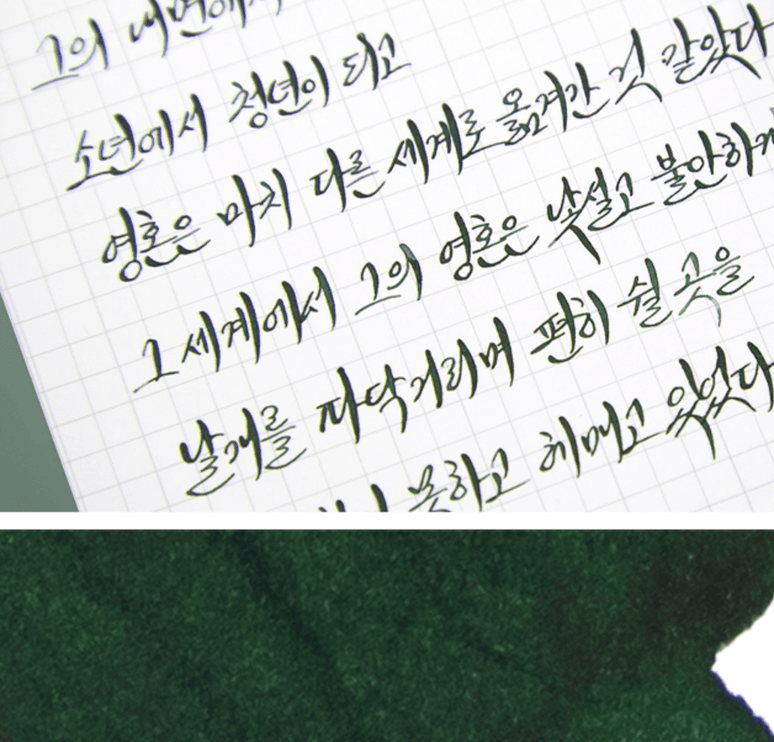 그의 내면에서
소년에서 청년이 되고
영혼은 마치 다른 세계로 옮겨간 것 같았다
그 세계에서 그의 영혼은 낯설고 불안하게
날개를 파닥거리며 편히 쉴 곳을
못하고 헤매고 있었다